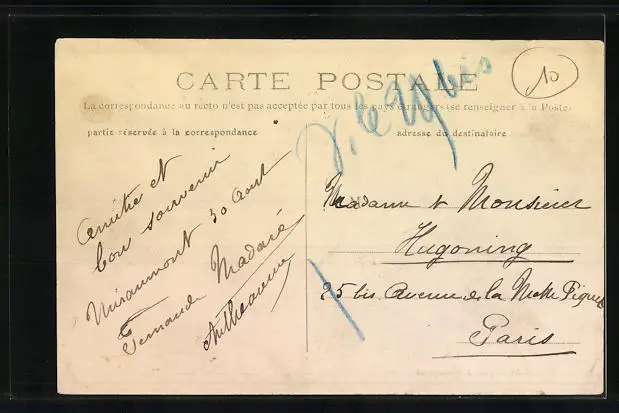 CARTE POSTALE
La correspondance au recto n'est pas acceptée par tous les pays étrangers (se renseigner à la Poste)
partie réservée à la correspondance
adresse du destinataire
10
Amitié et
bon souvenir
Miraumont 30 Aout
Fernande Madaré
Madame & Monsieur
Hugoning
25 bis Avenue de la Motte Piquet
Paris